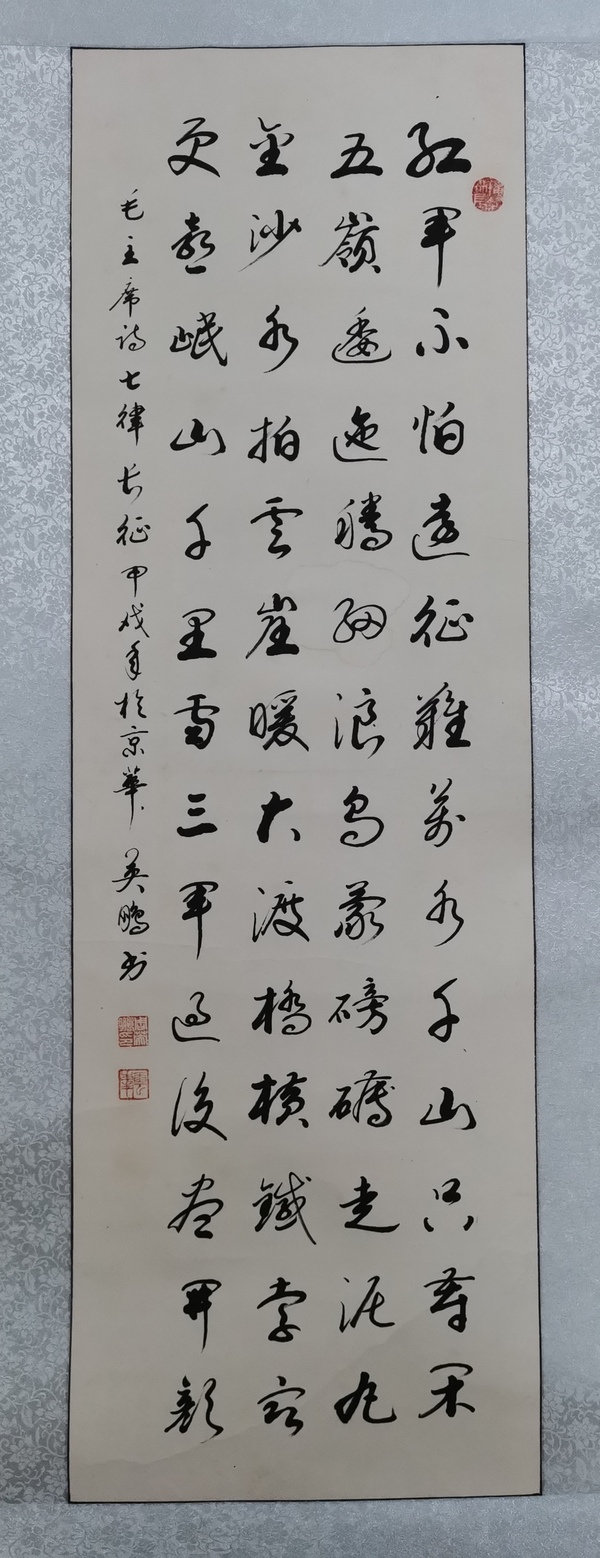 红军不怕遠征難萬水千山只等闲
五嶺逶迤腾细浪乌蒙磅礴走泥丸
金沙水拍云崖暖大渡橋横鐵索寒
更喜岷山千里雪三军过後尽開颜
毛主席诗七律长征甲戌年於京華 英鹏书